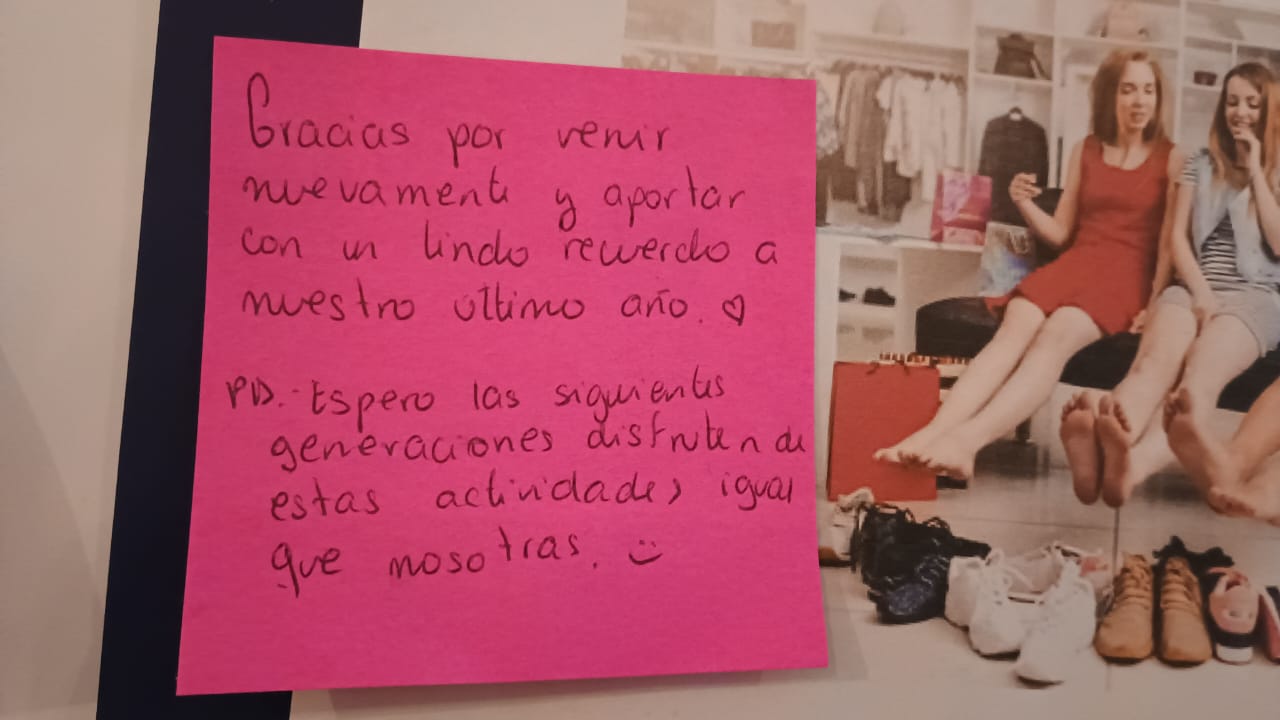 Gracias por venir
nuevamente y aportar
con un lindo recuerdo a
nuestro último año. ♡
PD.- Espero las siguientes
generaciones disfruten de
estas actividades igual
que nosotras. :)